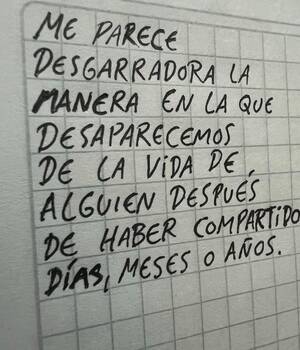 ME PARECE
DESGARRADORA LA
MANERA EN LA QUE
DESAPARECEMOS
DE LA VIDA DE
ALGUIEN DESPUÉS
DE HABER COMPARTIDO
DÍAS, MESES O AÑOS.